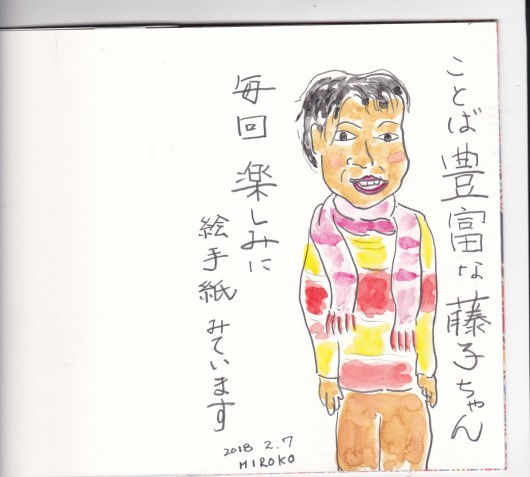 ことば豊富な藤子ちゃん
毎回 楽しみに
絵手紙 みています
2018 2.7
HIROKO